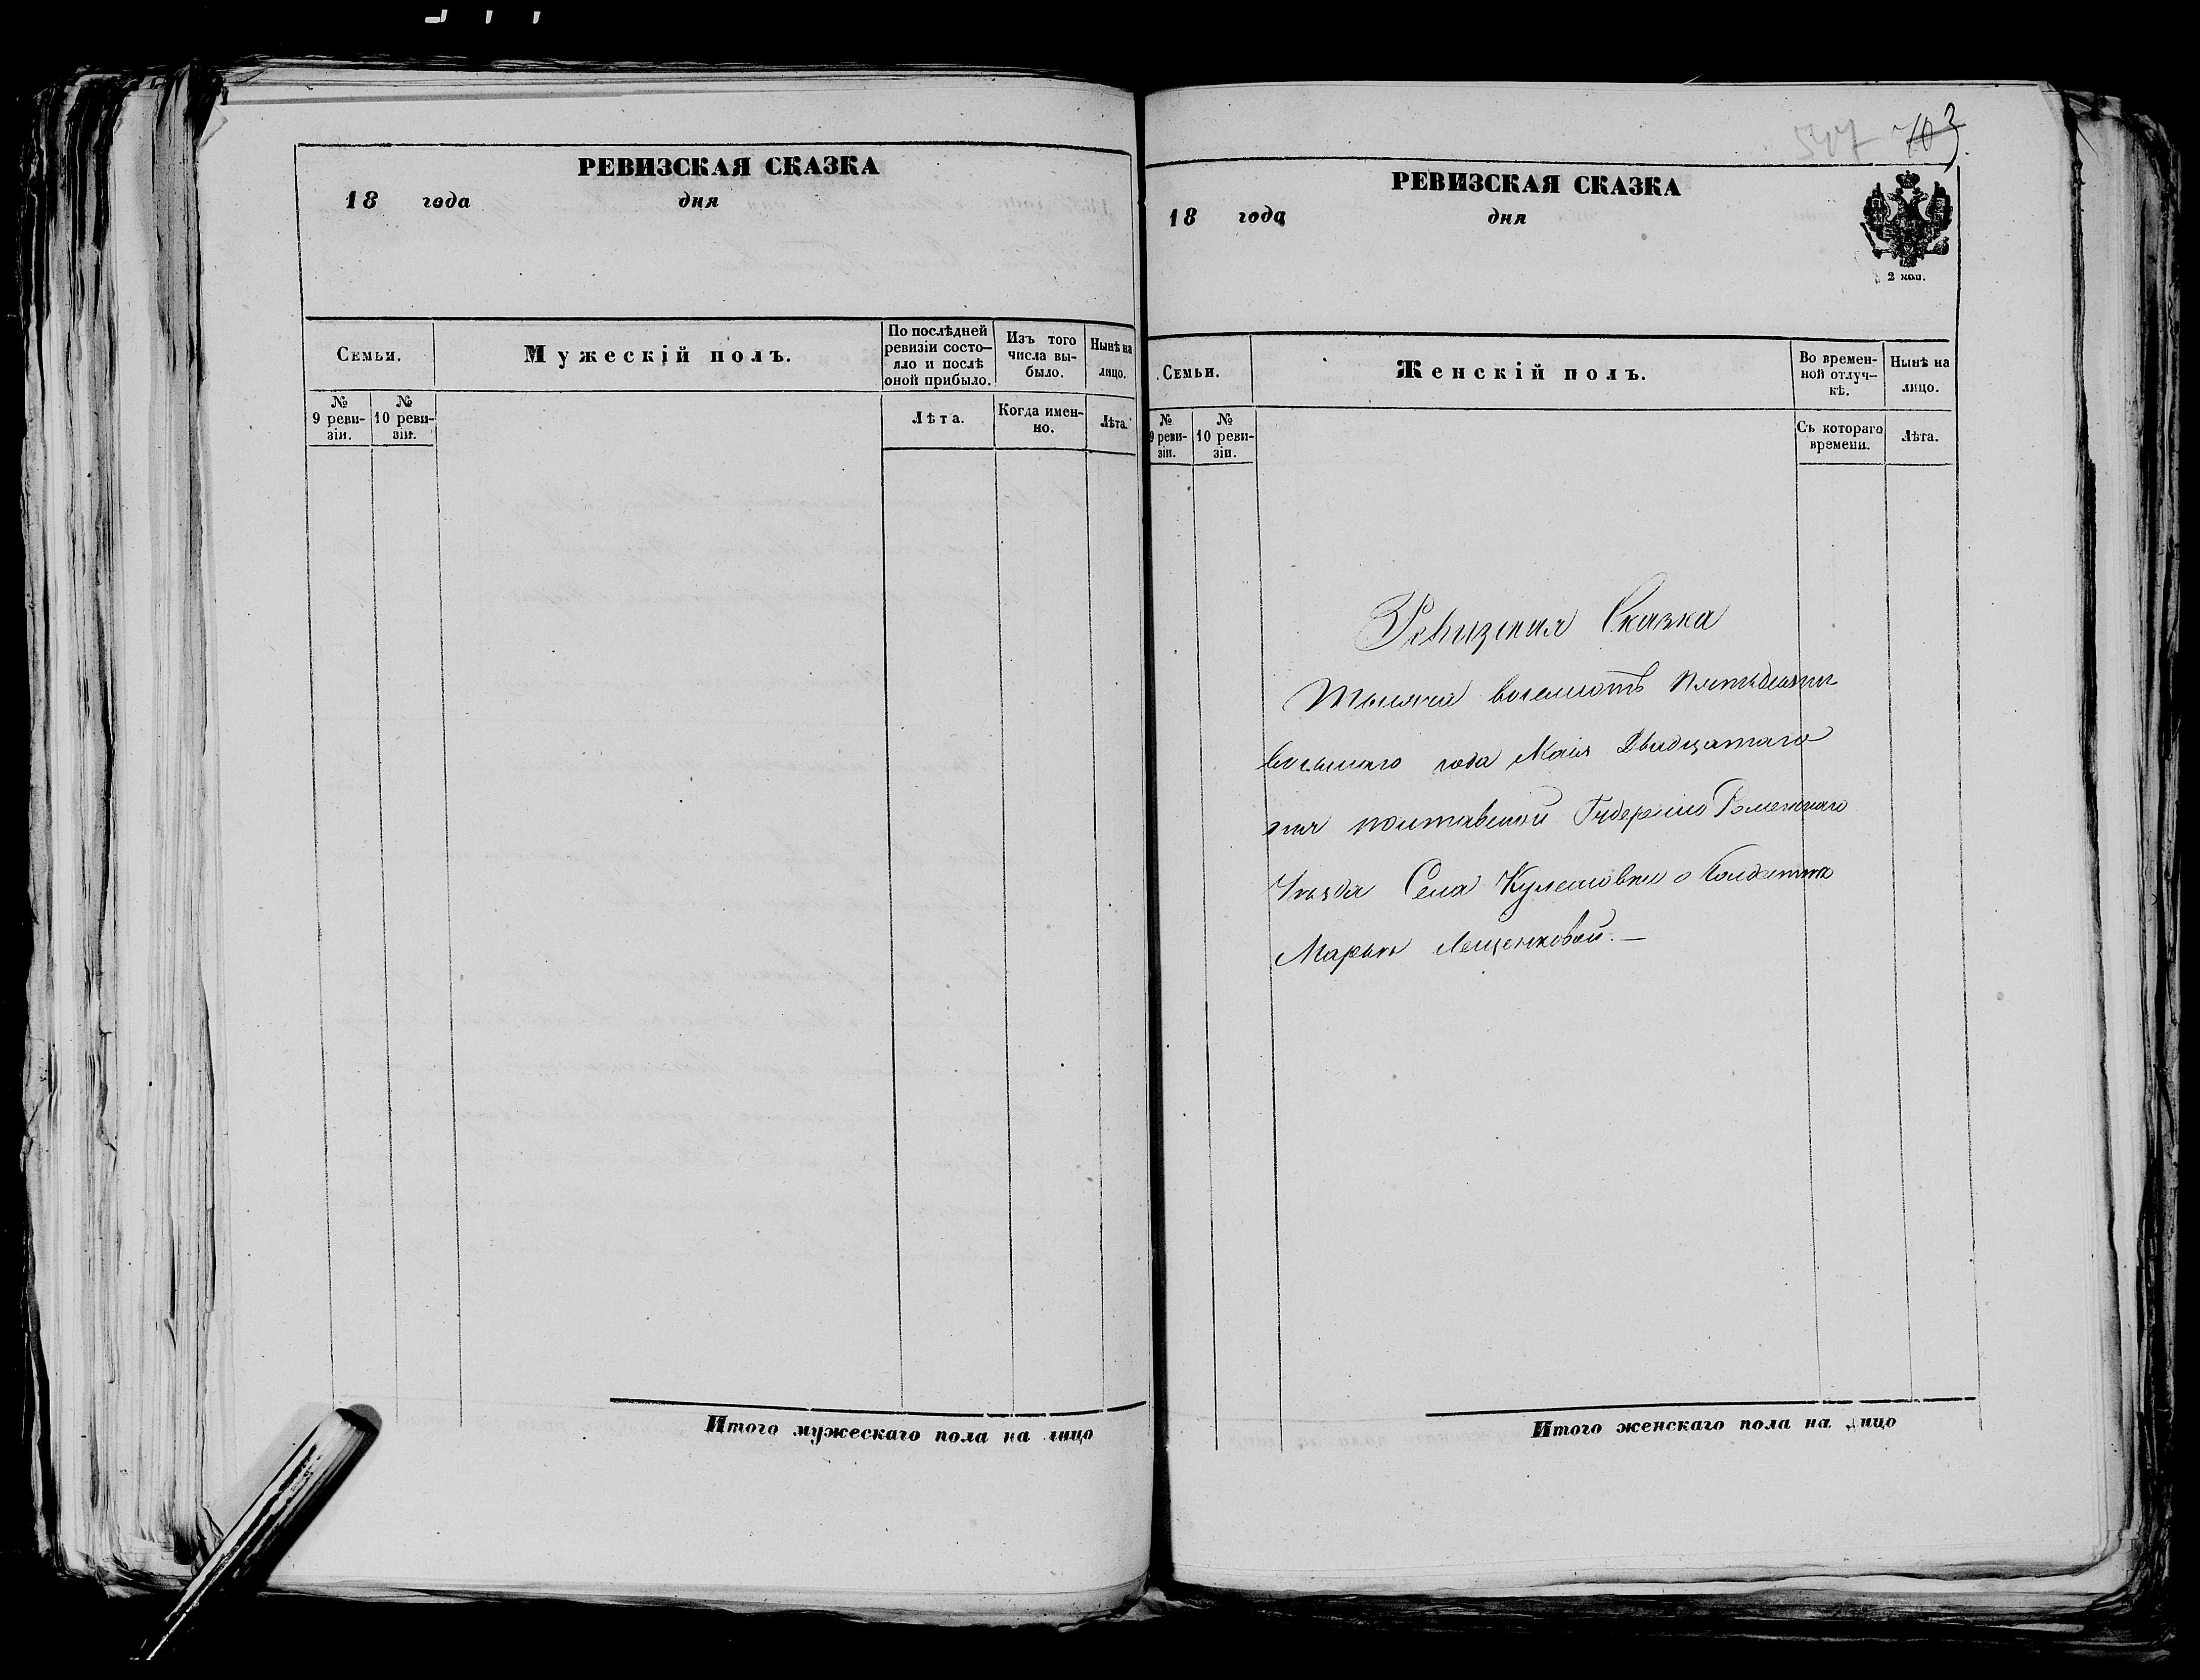 РЕВИЗСКАЯ СКАЗКА
18 года дня
Семьи.
Мужескій полъ.
По послѣдней ревизіи состо-
яло и послѣ
оной прибыло.
Изъ того
числа вы-
было.
Нынѣ на
лицо.
№
9 реви-
зіи.
№
10 реви-
зіи.
Лѣта.
Когда имен-
но.
Лѣта.
Итого мужескаго пола на лицо
547 703
РЕВИЗСКАЯ СКАЗКА
18 года дня
2 коп.
Семьи.
Женскій полъ.
Во времен-
ной отлуч-
кѣ.
Нынѣ на
лицо.
№
9 реви-
зіи.
№
10 реви-
зіи.
Съ котораго
времени.
Лѣта.
Ревизская Сказка
Тысяча восемсотъ пятьдесятъ
восьмаго года Маія Двадцатаго
дня полтавской Губерніи Роменскаго
Уѣзда Села Кулешовки о Солдатке
Марьи Лещенковой. —
Итого женскаго пола на лицо